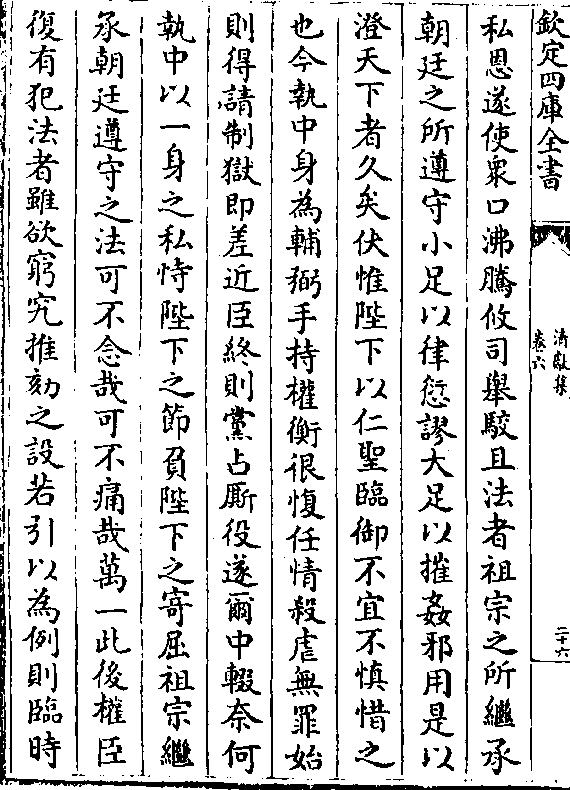 欽定四庫全書
清獻集
卷六
二十六
私恩遂使衆口沸騰攸司舉駮且法者祖宗之所繼承
朝廷之所遵守小足以律愆謬大足以摧姦邪用是以
澄天下者久矣伏惟陛下以仁聖臨御不宜不慎惜之
也今執中身為輔弼手持權衡很愎任情殺虐無罪始
則得請制獄即差近臣終則黨占厮役遂爾中輟奈何
執中以一身之私恃陛下之節負陛下之寄屈祖宗繼
承朝廷遵守之法可不念哉可不痛哉萬一此後權臣
復有犯法者雖欲窮究推劾之設若引以為例則臨時